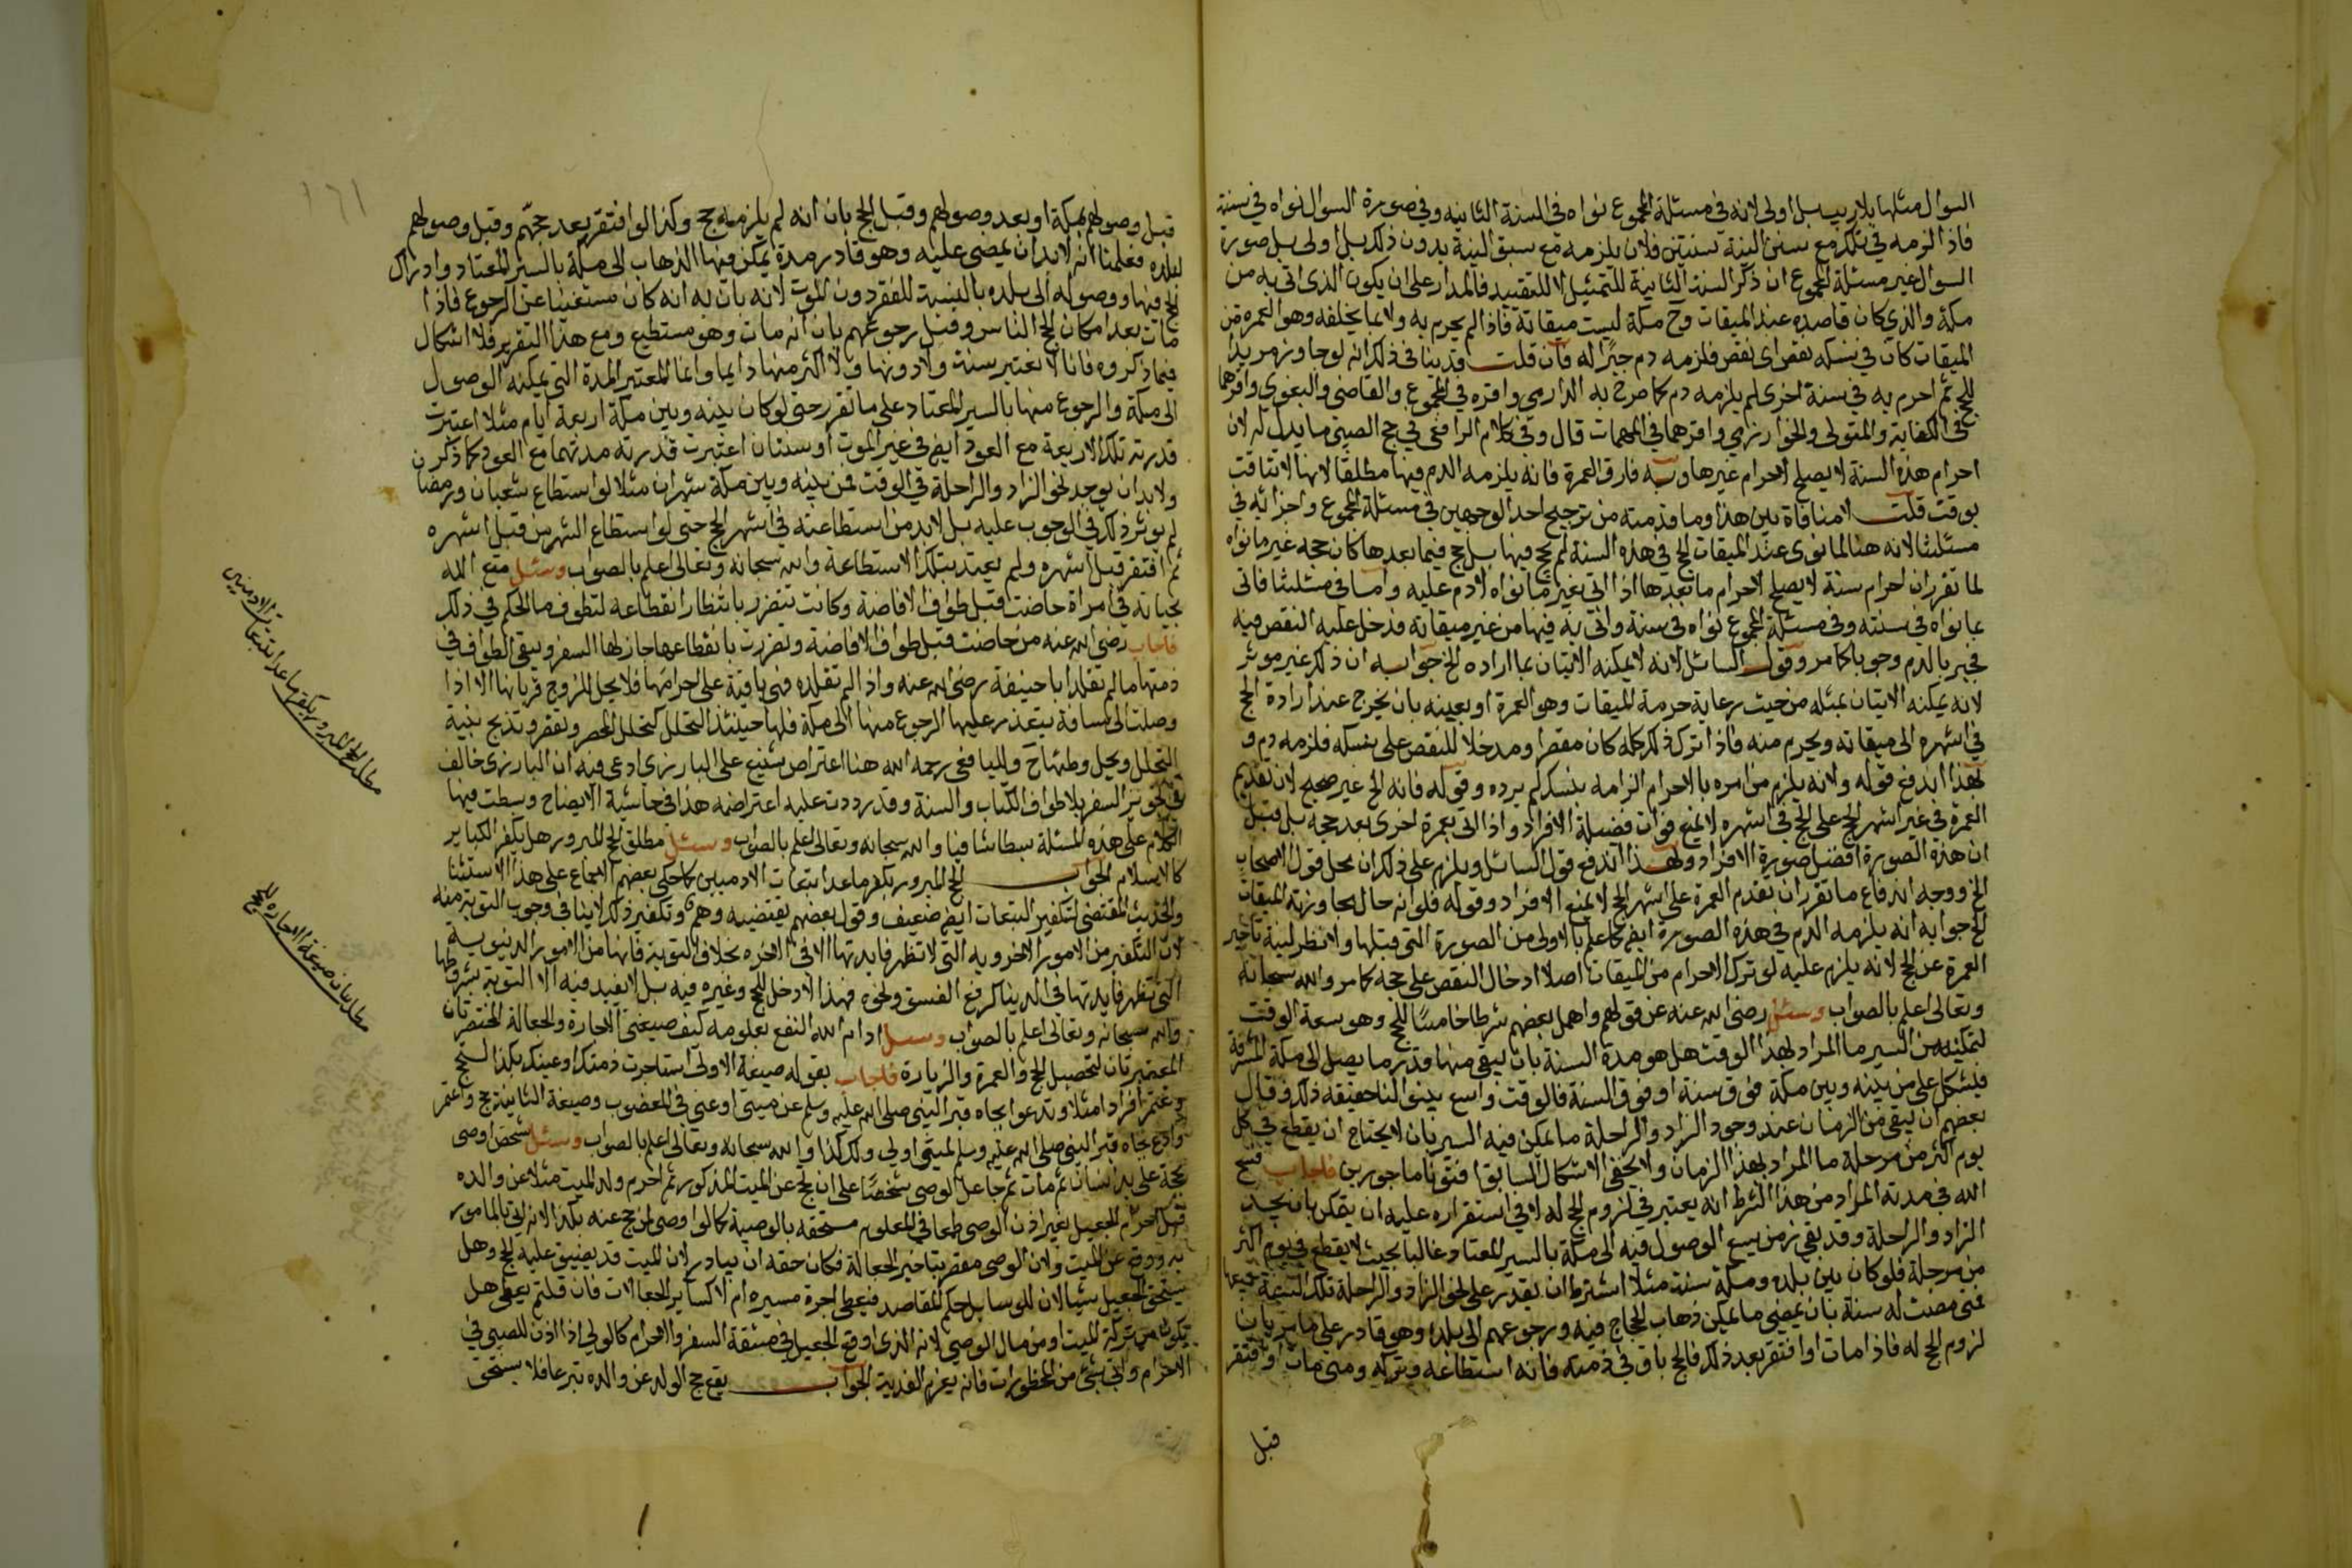 السوال مثلها بلا ريب بل اولى لانه في مسئلة المجموع نواه في السنة الثانيه وفي صورة السوال نواه في سنته
فاذا لزمه في تلك مع سنى النية سنتين فلان يلزمه مع سبق النية بدون ذلك بل اولى بل صورة
السوال غير مسئلة المجموع ان ذكر السنة الثانية للتمثيل لا للتقييد فالمدار على ان يكون الذى اتى به من
مكة والذي كان قاصده عند الميقات وح مكة ليست ميقاته فاذا لم يحرم به ولا بما يخلفه وهو العمرة من
الميقات كان في نسكه نقص اى نقص فلزمه دم جبرا له فان قلت قد ينافى ذلك انه لو جاوز مريدا
للحج ثم احرم به في سنة اخرى لم يلزمه دم كما صرح به الدارمى واقره في المجموع والقاضى والبغوى واقرهما
في الكفاية والمتولى والخوارزمي واقرهما في المهمات قال وفى كلام الرافعى في حج الصبى ما يدل له لان
احرام هذه السنة لا يصلح لاحرام غيرها وبه فارق العمرة فانه يلزمه الدم فيها مطلقا لانها لا تتاقت
بوقت قلت لا منافاة بين هذا وما قدمته من ترجيح احد الوجهين في مسئلة المجموع واجزائه فى
مسئلتنا لانه هنا لما نوى عند الميقات الحج في هذه السنة لم يحج فيها بل حج فيما بعدها كان حجه غير ما نواه
لما تقرر ان احرام سنة لا يصلح لاحرام ما بعدها اذا اتى بغير ما نواه لا دم عليه واما في مسئلتنا فاتى
بما نواه في سنته وفى مسئلة المجموع نواه في سنة واتى به فيها من غير ميقاته فدخل عليه النقص فيه
فجبر بالدم وجوبا كما مر وقول السائل لانه لا يمكنه الاتيان بما اراده الخ جوابه ان ذلك غير موثر
لانه يمكنه الاتيان بمثله من حيث رعاية حرمة الميقات وهو العمرة او بعينه بان يخرج عند ارادة الحج
في اشهره الى ميقاته ويحرم منه فاذا ترك ذلك كله كان مقصرا ومدخلا للنقص على نسكه فلزمه دم و
بهذا اندفع قوله ولانه يلزم من امره بالاحرام الزامه بنسك لم يرده وقوله فانه الخ غير صحيح لان تقديم
العمرة في غير اشهر الحج على الحج في اشهره لا يمنع فوات فضيلة الافراد واذا اتى بعمرة اخرى بعد حجه بل قيل
ان هذه الصورة افضل صورة الافراد وبهذا اندفع قول السائل ويلزم على ذلك ان محل قول الاصحاب
الخ ووجه اندفاع ما تقرر ان تقدم العمرة على اشهر الحج لا يمنع الافراد وقوله فلو انه حال مجاوزته الميقات
الخ جوابه انه يلزمه الدم في هذه الصورة ايضا كما علم بالاولى من الصورة التى قبلها ولا نظر لنية تاخير
العمرة عن الحج لانه يلزم عليه لو ترك الاحرام من الميقات اصلا ادخال النقص على حجه كما مر والله سبحانه
وتعالى اعلم بالصواب وسئل رضى الله عنه عن قولهم واهمل بعضهم شرطا خامسا للحج وهو سعة الوقت
لتمكينه من السير ما المراد بهذا الوقت هل هو مدة السنة بان يبقى منها قدر ما يصل الى مكة المشرفة
فيشكل على من بينه وبين مكة فوق سنة او فوق السنة فالوقت واسع بينوا لنا حقيقة ذلك فقال
بعضهم ان يبقى من الزمان عند وجود الزاد والراحلة ما يمكن فيه السير بان لا يحتاج ان يقطع في كل
يوم اكثر من مرحلة ما المراد بهذا الزمان ولا يخفى الاشكال السابق افتونا ماجورين فاجاب فسح
الله في مدته المراد من هذا الشرط انه يعتبر في لزوم الحج له لا في استقراره عليه ان يتمكن بان يجد
الزاد والراحلة وقد بقى زمن يسع الوصول فيه الى مكة بالسير المعتاد غالبا بحيث لا يقطع في يوم اكثر
من مرحلة فلو كان بين بلده ومكة سنة مثلا اشترط ان يقدر على نحو الزاد والراحلة تلك السنة جميعها
فمتى مضت له سنة بان يمضى ما يمكن ذهاب الحجاج فيه ورجوعهم الى بلده وهو قادر على ما مر بان
لزوم الحج له فاذا مات او افتقر بعد ذلك فالحج باق في ذمته فانه استطاعه وتركه ومتى مات او افتقر
قبل
١٦١
قبل وصولهم مكة او بعد وصولهم وقبل الحج بان انه لم يلزمه حج وكذا لو افتقر بعد حجهم وقبل وصولهم
لبلده فعلمنا انه لا بد ان يمضى عليه وهو قادر مدة يمكن فيها الذهاب الى مكة بالسير المعتاد وادراك
الحج فيها ووصوله الى بلده بالنسبة للفقر دون الموت لانه بان به انه كان مستغنيا عن الرجوع فاذا
مات بعد امكان الحج الناس وقبل رجوعهم بان انه مات وهو مستطيع ومع هذا التقرير فلا اشكال
فيما ذكروه فانا لا نعتبر سنة ولا دونها ولا اكثر منها دايما وانما المعتبر المدة التى يمكنه الوصول
الى مكة والرجوع منها بالسير المعتاد على ما تقرر حتى لو كان بينه وبين مكة اربعة ايام مثلا اعتبرت
قدرته تلك الاربعة مع العود ايضا في غير الموت او سنتان اعتبرت قدرته مدتهما مع العود كما ذكرن
ولا بد ان يوجد نحو الزاد والراحلة في الوقت فمن بينه وبين مكة شهران مثلا لو استطاع شعبان ورمضان
لم يوثر ذلك في الوجوب عليه بل لا بد من استطاعته في اشهر الحج حتى لو استطاع الشهرين قبل اشهره
ثم افتقر قبل اشهره ولم يعتد بتلك الاستطاعة والله سبحانه وتعالى اعلم بالصواب وسئل متع الله
بحياته في امراة حاضت قبل طواف الافاضة وكانت تتضرر بانتظار انقطاعه لتطوف ما الحكم في ذلك
فاجاب رضى الله عنه من حاضت قبل طواف الافاضة وتضررت بانقطاعها جاز لها السفر ويبقى الطواف في
ذمتها ما لم تقلد ابا حنيفة رضى الله عنه واذا لم تقلده فهى باقية على احرامها فلا يحل للزوج قربانها الا اذا
وصلت الى مسافة يتعذر عليها الرجوع منها الى مكة فلها حينئذ التحلل كتحلل المحصر وتقصر وتذبح بنية
التحلل ويحل وطئها ح ولليافعى رحمه الله هنا اعتراض شنيع على البارزى ادعى فيه ان البارزى خالف
في تجويز السفر بلا طواف الكتاب والسنة وقد رددت عليه اعتراضه هذا في حاشية الايضاح وبسطت فيها
الكلام على هذه المسئلة بسطا شافيا والله سبحانه وتعالى اعلم بالصواب وسئل مطلق الحج المبرور هل يكفر الكباير
كالاسلام الجواب الحج المبرور يكفر ما عدا تبعات الادميين كما حكى بعضهم الاجماع على هذا الاستثنا
والحديث المقتضى لتكفير التبعات ايضا ضعيف وقول بعضهم يقتضيه وهم وتكفير ذلك لا ينافى وجوب التوبة منه
لان التكفير من الامور الاخرويه التى لا تظهر فايدتها الا في الاخره بخلاف التوبة فانها من الامور الدنيوية
التى تظهر فايدتها في الدنيا كرفع الفسق ونحوه فهذا لا دخل للحج وغيره فيه بل لا يفيد فيه الا التوبة بشروطها
والله سبحانه وتعالى اعلم بالصواب وسئل ادام الله النفع بعلومه كيف صيغتى الاجارة والجعالة المختصرتان
المعتبرتان لتحصيل الحج والعمرة والزيارة فاجاب بقوله صيغة الاولى استاجرت ذمتك او عينك بكذا لتحج
وتعتمر افرادا مثلا وتدعو تجاه قبر النبى صلى الله عليه وسلم عن ميتى او عنى في المعضوب وصيغة الثانية حج واعتمر
وادع تجاه قبر النبى صلى الله عليه وسلم لميتى او لى ولك كذا والله سبحانه وتعالى اعلم بالصواب وسئل شخص اوصى
بحجة على يد انسان ثم مات ثم جاعل الوصى شخصا على ان يحج عن الميت المذكور ثم احرم ولد الميت مثلا عن والده
قبل احرام الجعيل بغير اذن الوصى طمعا في المعلوم مستحقه بالوصية كما لو اوصى لمن حج عنه بكذا لانه اتى بالمامور
به ووقع عن الميت ولان الوصى مقصر بتاخير الجعالة فكان حقه ان يبادر لان الميت قد يضيق عليه الحج وهل
يستحق الجعيل شيا لان للوسايل حكم المقاصد فيعطى اجرة مسيره ام لا كساير الجعالات فان قلتم يعطى هل
تكون من تركة الميت او من مال الوصى لانه الذى اوقع الجعيل في مشقة السفر والاحرام كالولى اذا اذن للصبى في
الاحرام واتى بشئ من المحظورات فانه يغرم الفدية الجواب يقع حج الولد عن والده تبرعا فلا يستحق
مطلب الحج المبرور يكفر ما عدا تبعات الادميين
مطلب بيان صيغة الاجارة للحج